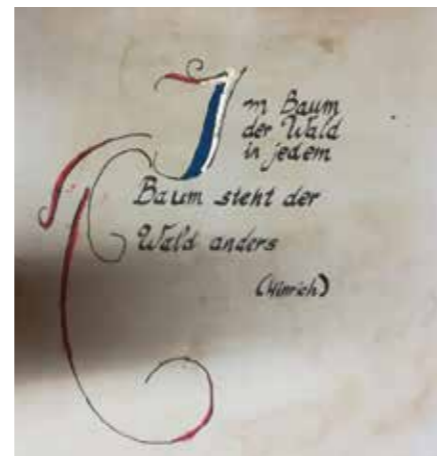 Im Baum
der Wald
in jedem
Baum steht der
Wald anders
(Hinrich)